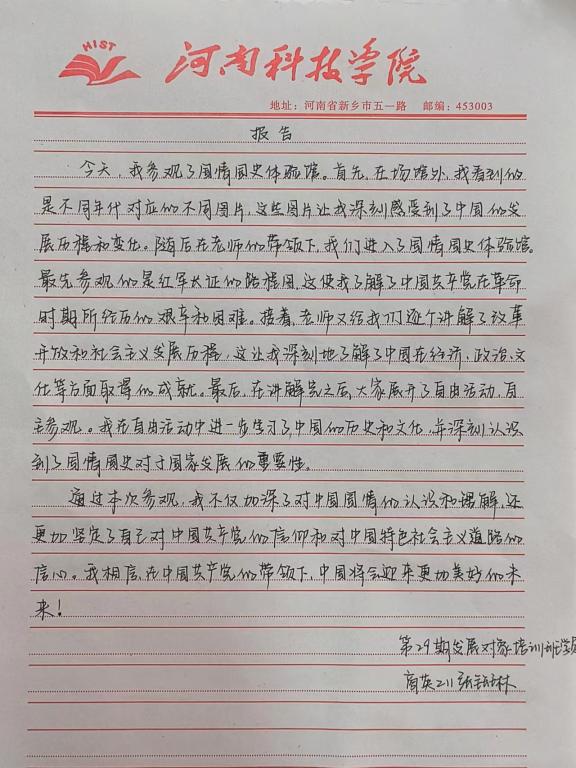 HIST
河南科技学院
地址：河南省新乡市五一路 邮编：453003
报告
今天，我参观了国情国史体验馆。首先，在场馆外，我看到的
是不同年代对应的不同图片，这些图片让我深刻感受到了中国的发
展历程和变化。随后在老师的带领下，我们进入了国情国史体验馆。
最先参观的是红军长征的路程图，这使我了解了中国共产党在革命
时期所经历的艰辛和困难。接着，老师又给我们逐个讲解了改革
开放和社会主义发展历程，这让我深刻地了解了中国在经济、政治、文
化等方面取得的成就。最后，在讲解完之后，大家展开了自由活动，自
主参观。我在自由活动中进一步学习了中国的历史和文化，并深刻认识
到了国情国史对于国家发展的重要性。
通过本次参观，我不仅加深了对中国国情的认识和理解，还
更加坚定了自己对中国共产党的信仰和对中国特色社会主义道路的
信心。我相信，在中国共产党的带领下，中国将会迎来更加美好的未
来！
第29期发展对象培训班学员
商英211张 林